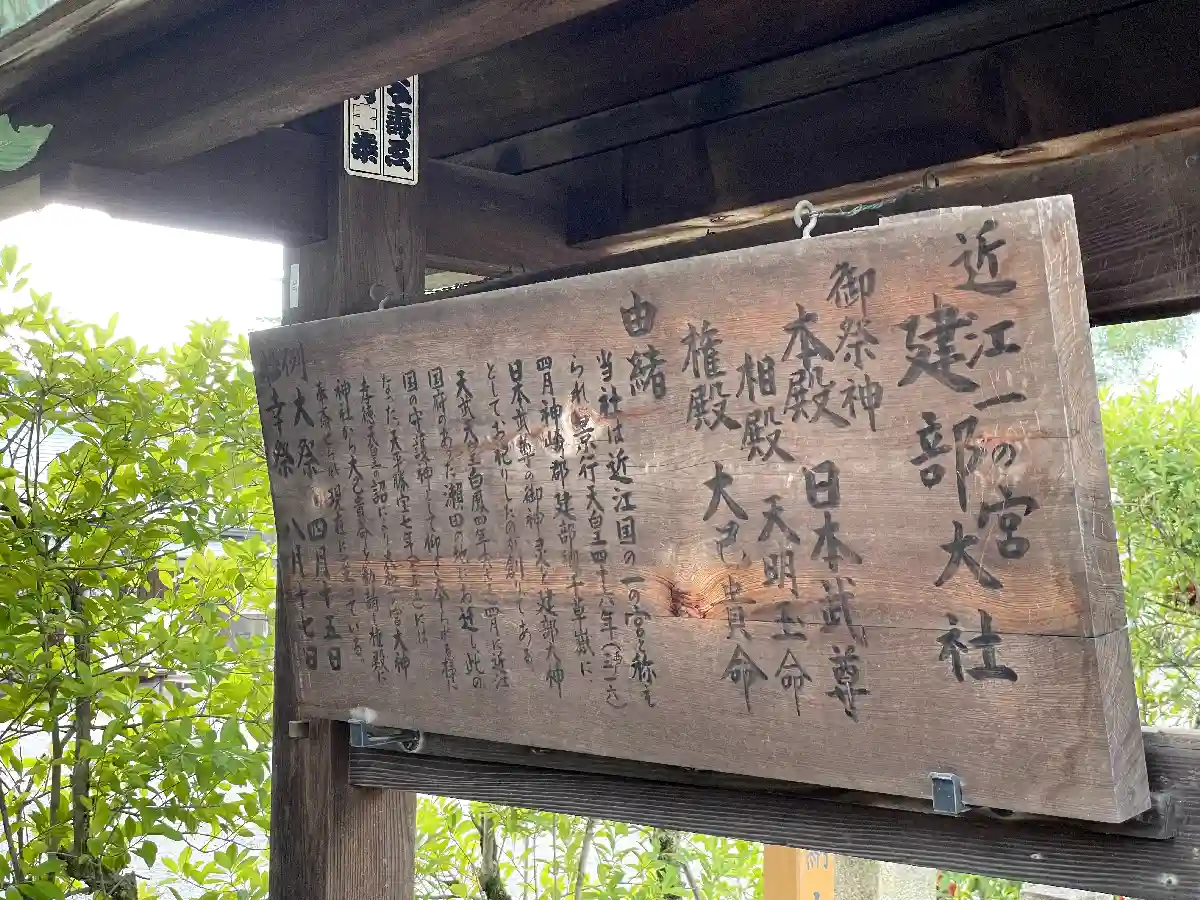 近江一の宮
建部大社
御祭神
本殿 日本武尊
相殿 天明玉命
権殿 大己貴命
由緒
当社は近江国の一の宮と称せ
られ 景行天皇四十六年(三一六)
四月神崎郡建部郷千草嶽に
日本武尊の御神霊を建部大神
としてお祀りしたのが創りである
天武天皇白鳳四年 四月に近江
国府のあった瀬田の地にお遷し此の
国の守護神として仰
なった 天平勝宝七年 には
孝徳天皇 詔により大 宮大神
神社から大己貴命を勧請し権殿に
奉斎 現在に至っている。
例大祭 四月十五日
幸祭 八月十七日